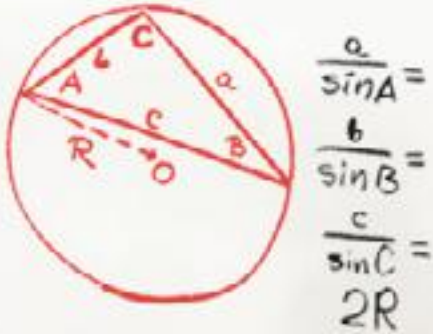 C
b
A
a
c
B
R
O
a
sinA =
b
sinB =
c
sinC =
2R